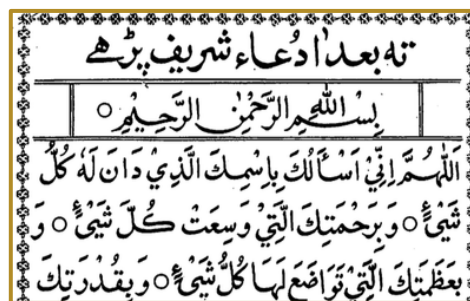 ته بعد ادُعاء شريف پڙهي
بِسْمِ اللهِ الرَّحْمٰنِ الرَّحِيْمِ ○
اَللّٰهُمَّ اِنِّيْ اَسْأَلُكَ بِاسْمِكَ الَّذِيْ دَانَ لَهٗ كُلُّ
شَيْئٍ ○ وَبِرَحْمَتِكَ الَّتِيْ وَسِعَتْ كُلَّ شَيْئٍ ○ وَ
بِعَظَمَتِكَ الَّتِيْ تَوَاضَعَ لَهَا كُلُّ شَيْئٍ ○ وَبِقُدْرَتِكَ